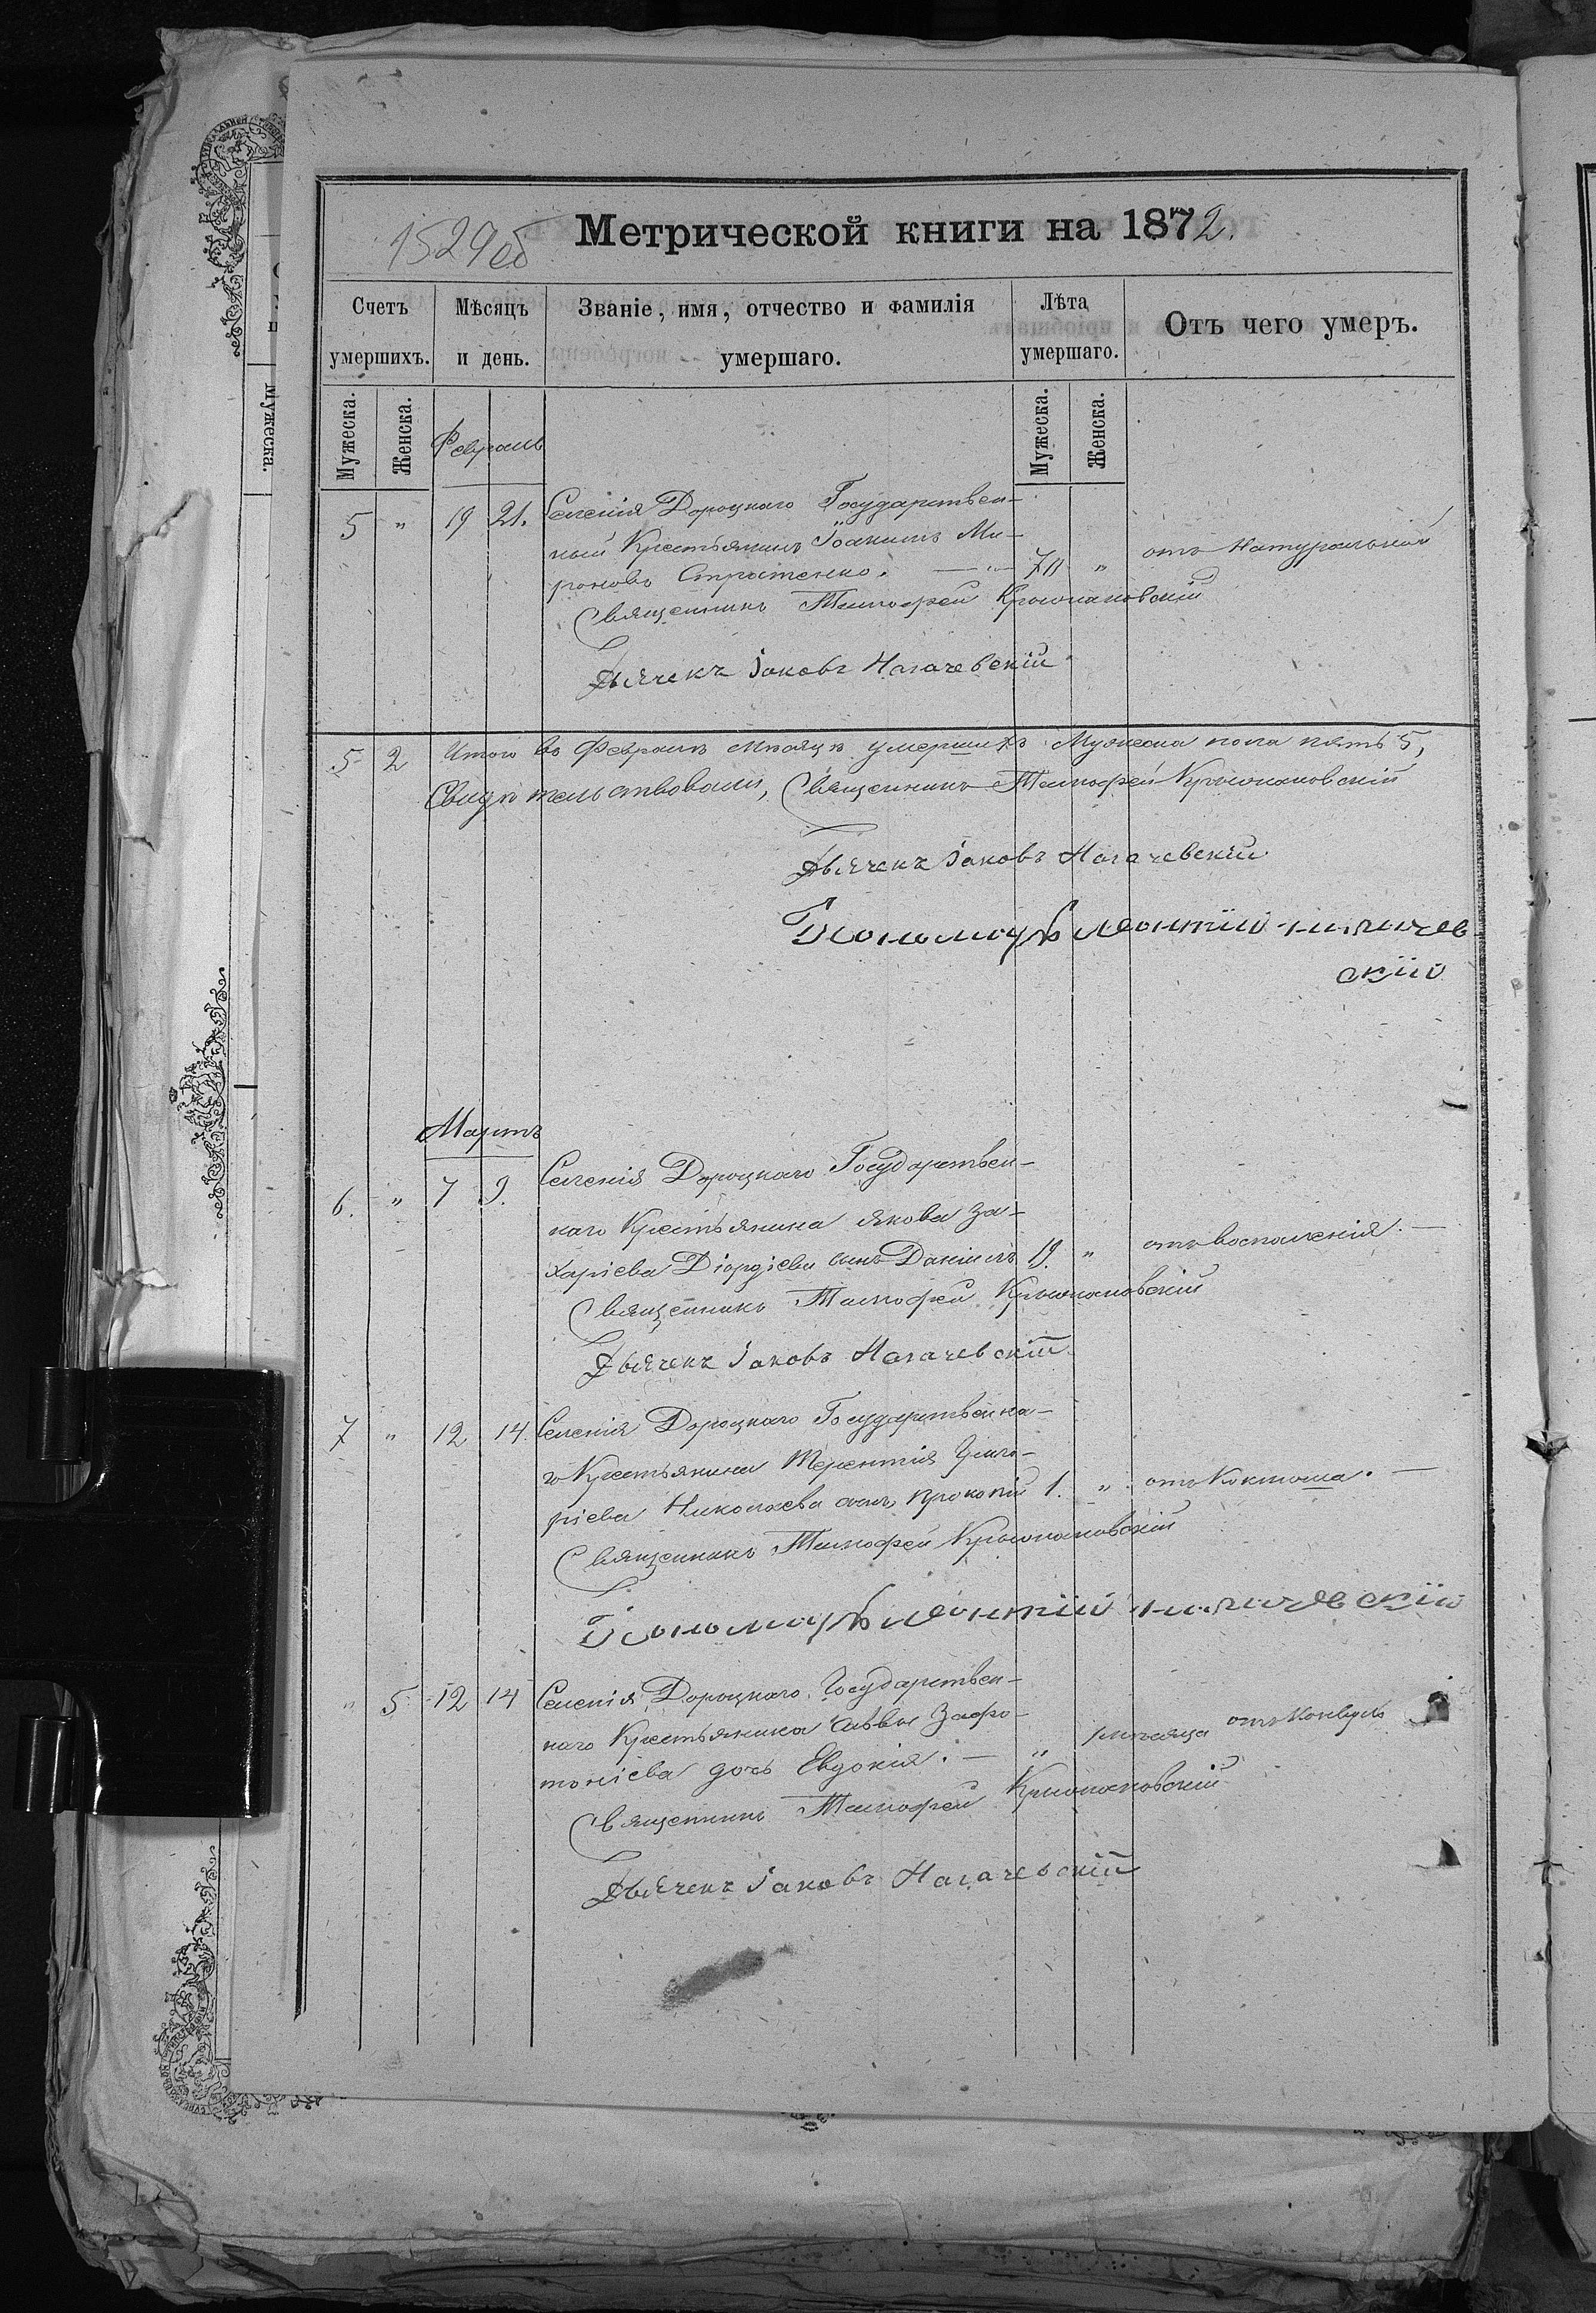 1529об
Метрической книги на 1872.
Счетъ умершихъ.
Мѣсяцъ и день.
Званіе, имя, отчество и фамилія умершаго.
Лѣта умершаго.
Отъ чего умеръ.
Мужеска.
Женска.
Мужеска.
Женска.
Мужеска.
Февраль
5 " 19 21. Селенія Дороцкаго Государствен-
ный Крестьянинъ Іоакимъ Ми-
роновъ Стратенко. — 70 " отъ Натуральной
Священникъ Тимофей
Дьячекъ Іаковъ Нагачевскій
5 2 Итого въ Февралѣ Мѣсяцѣ умершихъ Мужеска пола пять 5,
Свидѣтельствовали, Священникъ Тимофей
Дьячекъ Іаковъ Нагачевскій
Пономарь Леонтій Нагачев
скій
Мартъ
6. " 7 9. Селенія Дороцкаго Государствен-
наго Крестьянина Якова За-
харіева Діордіева сынъ Даніилъ 19. " отъ воспаленія. —
Священникъ Тимофей
Дьячекъ Іаковъ Нагачевскій
7 " 12 14. Селенія Дороцкаго Государственна-
го Крестьянина Терентія Григо-
ріева Николаева сынъ Прокопій 1. " отъ Коклюша. —
Священникъ Тимофей
Пономарь Леонтій Нагачевскій
" 5 12 14 Селенія Дороцкаго Государствен-
наго Крестьянина Саввы
дочь Евдокія. — " 1 мѣсяца отъ
Священникъ Тимофей
Дьячекъ Іаковъ Нагачевскій